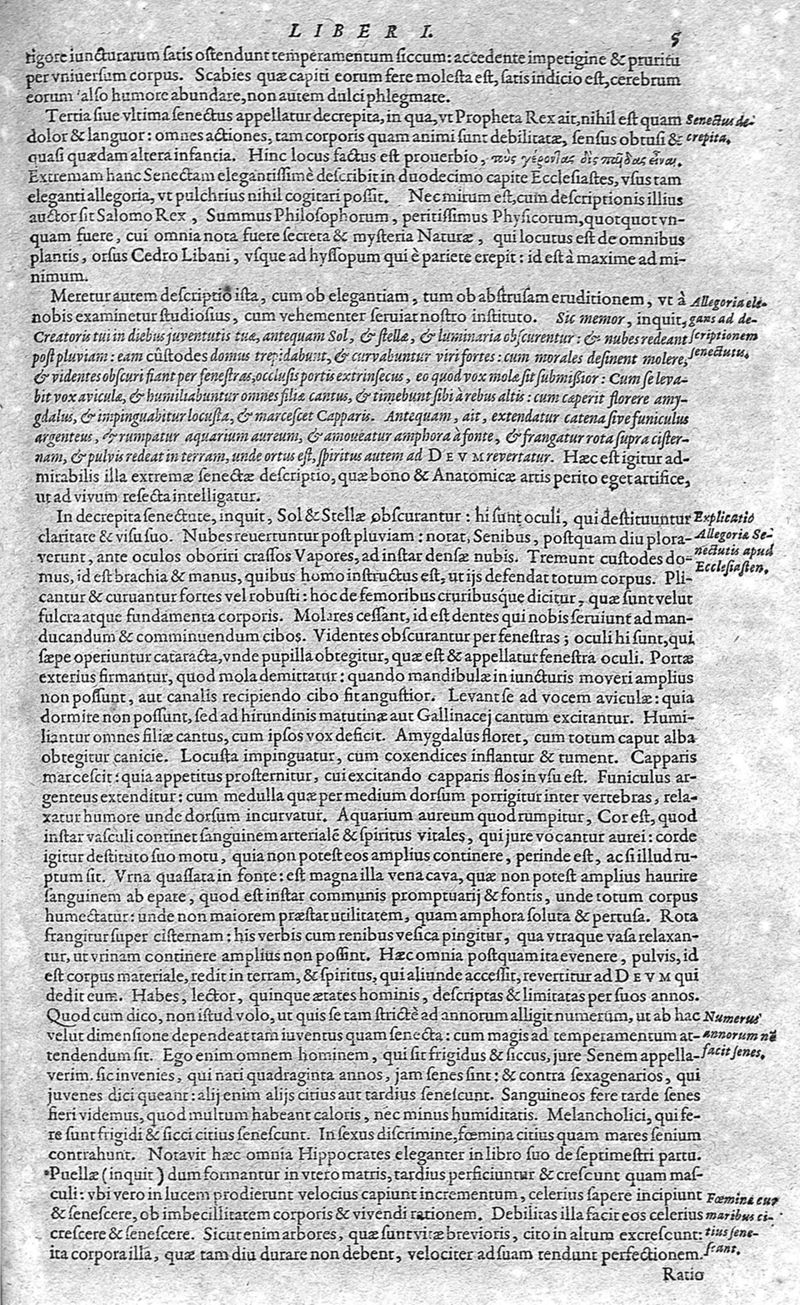 LIBER I. 5
rigore iuncturarum satis ostendunt temperamentum siccum: accedente impetigine & pruritu
per vniuersum corpus. Scabies quæ capiti eorum fere molesta est, satis indicio est, cerebrum
eorum salso humore abundare, non autem dulci phlegmate.
Tertia siue vltima senectus appellatur decrepita, in qua, vt Propheta Rex ait, nihil est quam
Senectus de-
dolor & languor: omnes actiones, tam corporis quam animi sunt debilitatæ, sensus obtusi &
crepita.
quasi quædam altera infantia. Hinc locus factus est prouerbio, τοὺς γέροντας δὶς παῖδας εἶναι.
Extremam hanc Senectam elegantissimè describit in duodecimo capite Ecclesiastes, vsus tam
eleganti allegoria, vt pulchrius nihil cogitari possit. Nec mirum est, cum descriptionis illius
auctor sit Salomo Rex, Summus Philosophorum, peritissimus Physicorum, quotquot vn-
quam fuere, cui omnia nota fuere secreta & mysteria Naturæ, qui locutus est de omnibus
plantis, orsus Cedro Libani, vsque ad hyssopum qui è pariete erepit: id est à maxime ad mi-
nimum.
Meretur autem descriptio ista, cum ob elegantiam, tum ob abstrusam eruditionem, vt à
Allegoria ele-
nobis examinetur studiosius, cum vehementer seruiat nostro instituto. Sic memor, inquit,
gans ad de-
Creatoris tui in diebus juventutis tuæ, antequam Sol, & stellæ, & luminaria obscurentur: & nubes redeant
scriptionem
post pluviam: eam custodes domus trepidabunt, & curvabuntur viri fortes: cum morales desinent molere,
senectutis.
& videntes obscuri fiant per fenestras, occlusis portis extrinsecus, eo quod vox molæ sit submissior: Cum se leva-
bit vox aviculæ, & humiliabuntur omnes filiæ cantus, & timebunt sibi à rebus altis: cum cæperit florere amy-
gdalus, & impinguabitur locusta, & marcescet Capparis. Antequam, ait, extendatur catena sive funiculus
argenteus, & rumpatur aquarium aureum, & amoueatur amphora à fonte, & frangatur rota supra cister-
nam, & pulvis redeat in terram, unde ortus est, spiritus autem ad DEVM revertatur. Hæc est igitur ad-
mirabilis illa extremæ senectæ descriptio, quæ bono & Anatomicæ artis perito eget artifice,
ut ad vivum resecta intelligatur.
In decrepita senectute, inquit, Sol & Stellæ obscurantur: hi sunt oculi, qui destituuntur
Explicatio
claritate & visu suo. Nubes reuertuntur post pluviam: notat, Senibus, postquam diu plora-
Allegoria Se-
verunt, ante oculos oboriri crassos Vapores, ad instar densæ nubis. Tremunt custodes do-
nectutis apud
mus, id est brachia & manus, quibus homo instructus est, ut ijs defendat totum corpus. Pli-
Ecclesiasten.
cantur & curuantur fortes vel robusti: hoc de femoribus cruribusque dicitur, quæ sunt velut
fulcra atque fundamenta corporis. Molares cessant, id est dentes qui nobis seruiunt ad man-
ducandum & comminuendum cibos. Videntes obscurantur per fenestras; oculi hi sunt, qui
sæpe operiuntur cataracta, vnde pupilla obtegitur, quæ est & appellatur fenestra oculi. Portæ
exterius firmantur, quod mola demittatur: quando mandibulæ in iuncturis moveri amplius
non possunt, aut canalis recipiendo cibo fit angustior. Levant se ad vocem aviculæ: quia
dormire non possunt, sed ad hirundinis matutinæ aut Gallinacej cantum excitantur. Humi-
liantur omnes filiæ cantus, cum ipsos vox deficit. Amygdalus floret, cum totum caput alba
obtegitur canicie. Locusta impinguatur, cum coxendices inflantur & tument. Capparis
marcescit: quia appetitus prosternitur, cui excitando capparis flos in vsu est. Funiculus ar-
genteus extenditur: cum medulla quæ per medium dorsum porrigitur inter vertebras, rela-
xatur humore unde dorsum incurvatur. Aquarium aureum quod rumpitur, Cor est, quod
instar vasculi continet sanguinem arterialē & spiritus vitales, qui jure vocantur aurei: corde
igitur destituto suo motu, quia non potest eos amplius continere, perinde est, ac si illud ru-
ptum sit. Vrna quassata in fonte: est magna illa vena cava, quæ non potest amplius haurire
sanguinem ab epate, quod est instar communis promptuarij & fontis, unde totum corpus
humectatur: unde non maiorem præstat utilitatem, quam amphora soluta & pertusa. Rota
frangitur super cisternam: his verbis cum renibus vesica pingitur, qua vtraque vasa relaxan-
tur, ut vrinam continere amplius non possint. Hæc omnia postquam ita evenere, pulvis, id
est corpus materiale, redit in terram, & spiritus, qui aliunde accessit, revertitur ad DEVM qui
dedit eum. Habes, lector, quinque ætates hominis, descriptas & limitatas per suos annos.
Quod cum dico, non istud volo, ut quis se tam strictè ad annorum alligit numerum, ut ab hac
Numerus
velut dimensione dependeat tam iuventus quam senecta: cum magis ad temperamentum at-
annorum nō
tendendum sit. Ego enim omnem hominem, qui sit frigidus & siccus, jure Senem appella-
facit senes.
verim. sic invenies, qui nati quadraginta annos, jam senes sint: & contra sexagenarios, qui
juvenes dici queant: alij enim alijs citius aut tardius senescunt. Sanguineos fere tarde senes
fieri videmus, quod multum habeant caloris, nec minus humiditatis. Melancholici, qui fe-
re sunt frigidi & sicci citius senescunt. In sexus discrimine, fœmina citius quam mares senium
contrahunt. Notavit hæc omnia Hippocrates eleganter in libro suo de septimestri partu.
Puellæ (inquit) dum formantur in vtero matris, tardius perficiuntur & crescunt quam mas-
culi: vbi vero in lucem prodierunt velocius capiunt incrementum, celerius sapere incipiunt
Fœminæ cur
& senescere, ob imbecillitatem corporis & vivendi rationem. Debilitas illa facit eos celerius
maribus ci-
crescere & senescere. Sicut enim arbores, quæ sunt vitæ brevioris, cito in altum excrescunt:
tius sene-
ita corpora illa, quæ tam diu durare non debent, velociter ad suam tendunt perfectionem.
scant.
Ratio